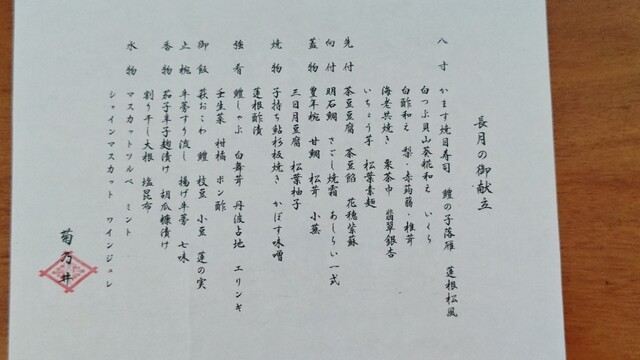 長月の御献立
八寸 かます焼目寿司 鱧の子落雁 蓮根松風
白つぶ貝山葵糀和え いくら
白酢和え 梨・赤蒟蒻・椎茸
海老共焼き 栗茶巾 翡翠銀杏
いちょう芋 松葉素麺
先付 茶豆豆腐 茶豆餡 花穂紫蘇
向付 明石鯛 さごし焼霜 あしらい一式
蓋物 豊年椀 甘鯛 松茸 小蕪
三日月豆腐 松葉柚子
焼物 子持ち鮎杉板焼き かぼす味噌
蓮根酢漬
強肴 鱧しゃぶ 白舞茸 丹波占地 エリンギ
壬生菜 柑橘 ポン酢
御飯 萩おこわ 鱧 枝豆 小豆 蓮の実
止椀 牛蒡すり流し 揚げ牛蒡 七味
香物 茄子辛子麹漬け 胡瓜糠漬け
割り干し大根 塩昆布
水物 マスカットソルベ ミント
シャインマスカット ワインジュレ
菊乃井